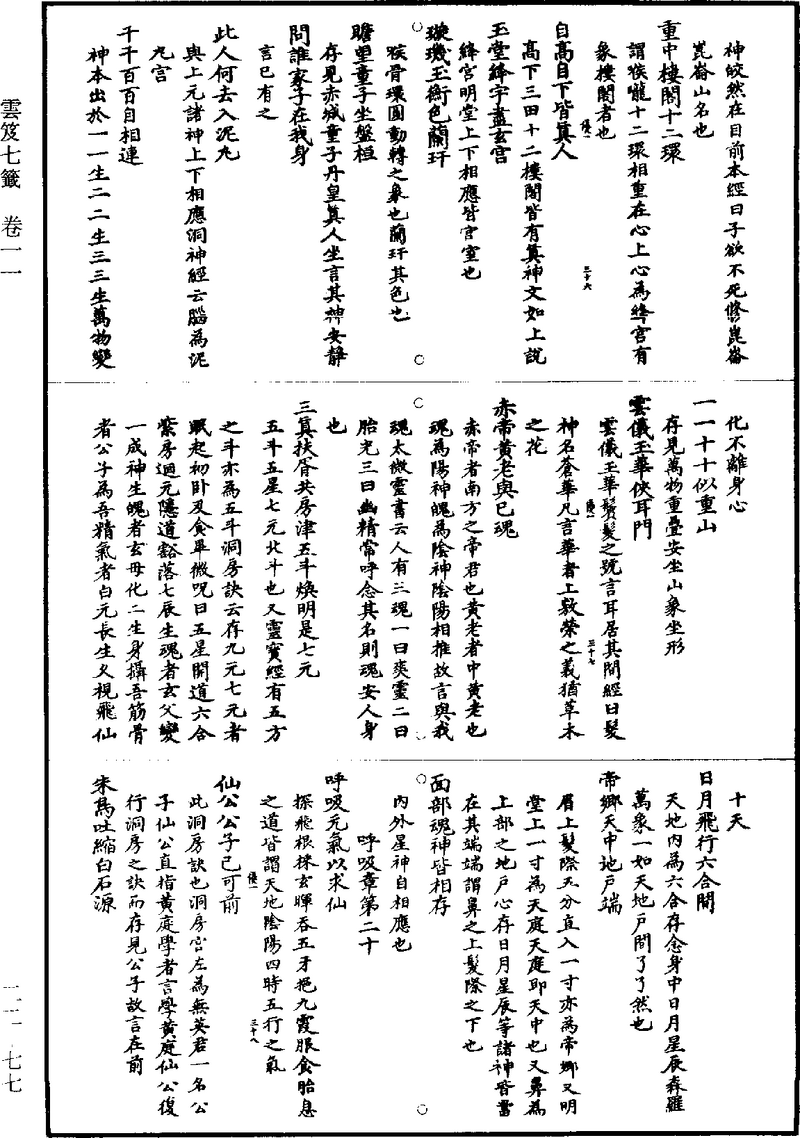 雲笈七籤 卷一一
神皎然在目前本經曰子欲不死修崑崙
崑崙山名也
重中樓閣十二環
謂喉嚨十二環相重在心上心為絳宮有
象樓閣者也
自高自下皆真人
三十六
高下三田十二樓閣皆有真神文如上說
玉堂絳宇盡玄宮
絳宮明堂上下相應皆宮室也
璇璣玉衡色蘭玕
喉骨環圓動轉之象也蘭玕其色也
瞻望童子坐盤桓
存見赤城童子丹皇真人坐言其神安靜
問誰家子在我身
言已有之
此人何去入泥丸
與上元諸神上下相應洞神經云腦為泥
丸宮
千千百百自相連
神本出於一一生二二生三三生萬物變
化不離身心
一一十十似重山
存見萬物重疊安坐山象坐形
雲儀玉華俠耳門
雲儀玉華鬢髮之號言耳居其間經曰髮
三十七
神名蒼華凡言華者上敷榮之義猶草木
之花
赤帝黃老與已魂
赤帝者南方之帝君也黃老者中黃老也
魂為陽神魄為陰神陰陽相推故言與我
魂太微靈書云人有三魂一曰爽靈二曰
胎光三曰幽精常呼念其名則魂安人身
也
三真扶胥共房津五斗煥明是七元
五斗五星七元北斗也又靈寶經有五方
之斗亦為五斗洞房訣云存九元七元者
眠起初卧及食畢微呪曰五星開道六合
紫房迴元隱道豁落七辰生魂者玄父變
一成神生魄者玄母化二生身攝吾筋骨
者公子為吾精氣者白元長生久視飛仙
十天
日月飛行六合間
天地內為六合存念身中日月星辰森羅
萬象一如天地戶間了了然也
帝鄉天中地戶端
眉上髮際五分直入一寸亦為帝鄉又明
堂上一寸為天庭天庭即天中也又鼻為
上部之地戶心存日月星辰等諸神皆當
在其端端謂鼻之上髮際之下也
面部魂神皆相存
內外星神自相應也
呼吸章第二十
呼吸元氣以求仙
探飛根採玄暉吞五牙挹九霞服食胎息
之道皆謂天地陰陽四時五行之氣
三十八
仙公公子已可前
此洞房訣也洞房宮左為無英君一名公
子仙公直指黃庭學者言學黃庭仙公復
行洞房之訣而存見公子故言在前
朱鳥吐縮白石源
二二-七七